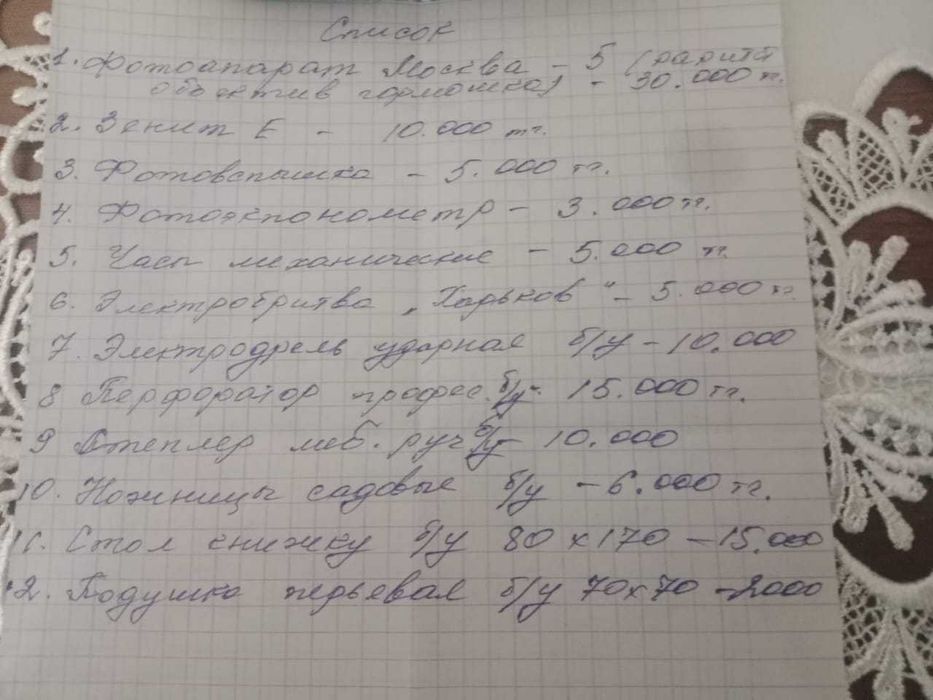 Список
1. Фотоапарат Москва - 5 (рарите
объектив гармошка) - 30.000 тг.
2. Зенит Е - 10.000 тг.
3. Фотовспышка - 5.000 тг.
4. Фотоэкпонометр - 3.000 тг.
5. Часы механические - 5.000 тг.
6. Электробритва „Харьков" - 5.000 тг.
7. Электродрель ударная б/у - 10.000
8 Перфоратор професс. б/у - 15.000 тг.
9 Степлер меб. руч б/у 10.000
10. Ножницы садовые б/у - 6.000 тг.
11. Стол книжку б/у 80 х 170 - 15.000
12. Подушка перьевая б/у 70х70 - 2000